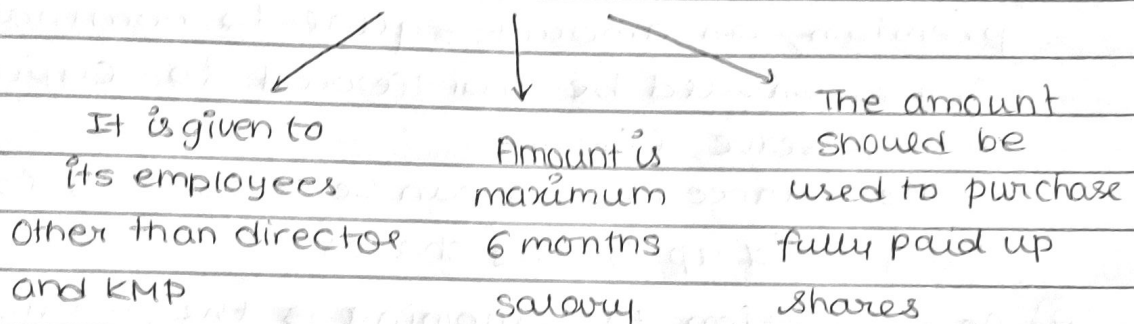 It is given to
its employees
other than director
and KMP
Amount is
maximum
6 months
salary
The amount
should be
used to purchase
fully paid up
shares